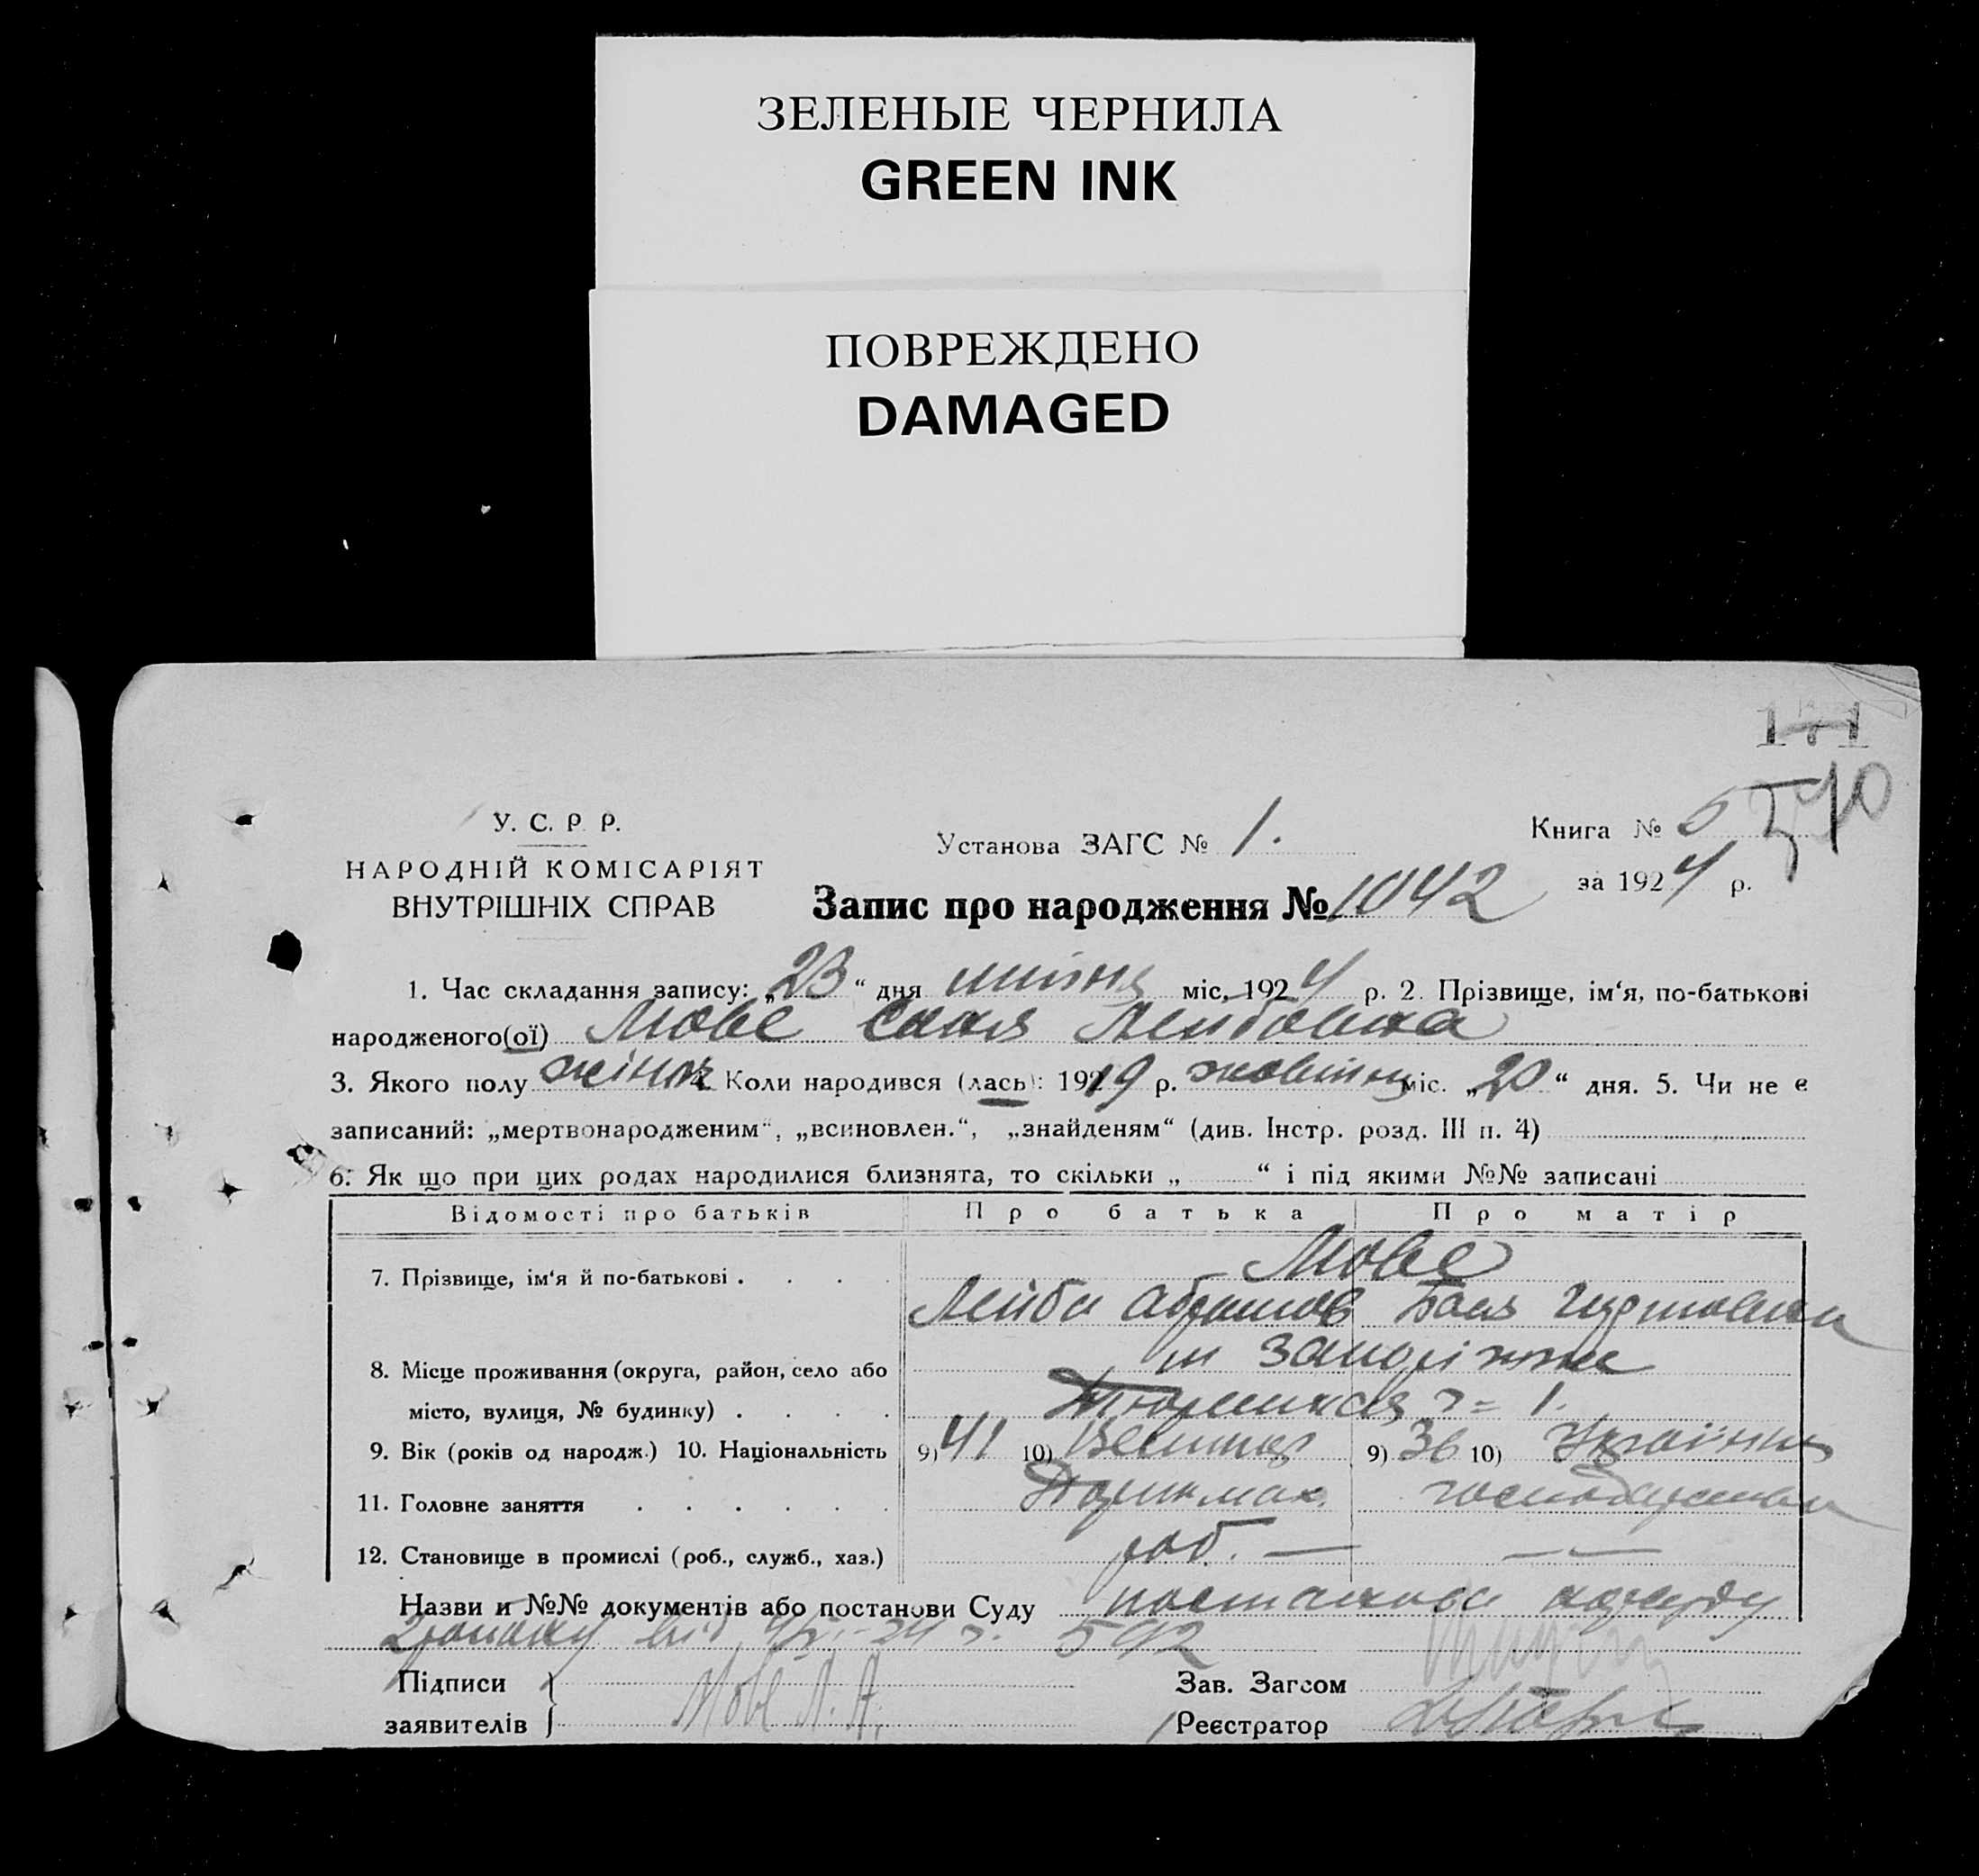 ЗЕЛЕНЫЕ ЧЕРНИЛА
GREEN INK
ПОВРЕЖДЕНО
DAMAGED
У. С. Р. Р.
НАРОДНІЙ КОМІСАРІЯТ
ВНУТРІШНІХ СПРАВ
Установа ЗАГС № 1.
Книга № 5
за 1924 р.
Запис про народження № 1042
1. Час складання запису: „23“ дня липня міс. 1924 р. 2. Прізвище, ім‘я, по-батькові
народженого(ої) Мове Лейбовна
3. Якого полу жіноч. 4. Коли народився (лась): 1919 р. жовтня міс. „20“ дня. 5. Чи не є
записаний: „мертвонародженим“, „всиновлен.“, „знайденям“ (див. Інстр. розд. III п. 4)
6. Як що при цих родах народилися близнята, то скільки „ “ і під якими №№ записані
Відомості про батьків Про батька Про матір
7. Прізвище, ім‘я й по-батькові . . . . Мове
Лейба Абрамов Бася
8. Місце проживання (округа, район, село або м Запоріжже
місто, вулиця, № будинку) . . . . 1.
9. Вік (років од народж.) 10. Національність 9) 41 10) 9) 36 10)
11. Головне заняття . . . . . .
12. Становище в промислі (роб., служб., хаз.) роб. — — —
Назви й №№ документів або постанови Суду постанова
592
Підписи
заявителів } Мове Л. А.
Зав. Загсом
Реєстратор